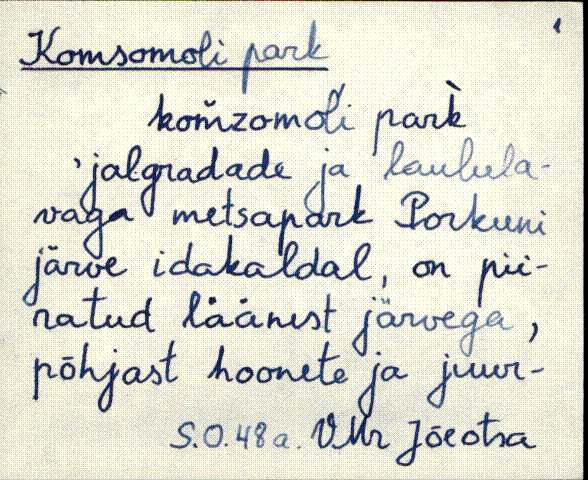 Komsomoli park
kom̆zomoĺi park̀
'jalgradade ja laulula-
vaga metsapark Porkuni
järve idakaldal, on pii-
ratud läänest järvega,
põhjast hoonete ja juur-
S.O. 48 a. VMr Jõeotsa